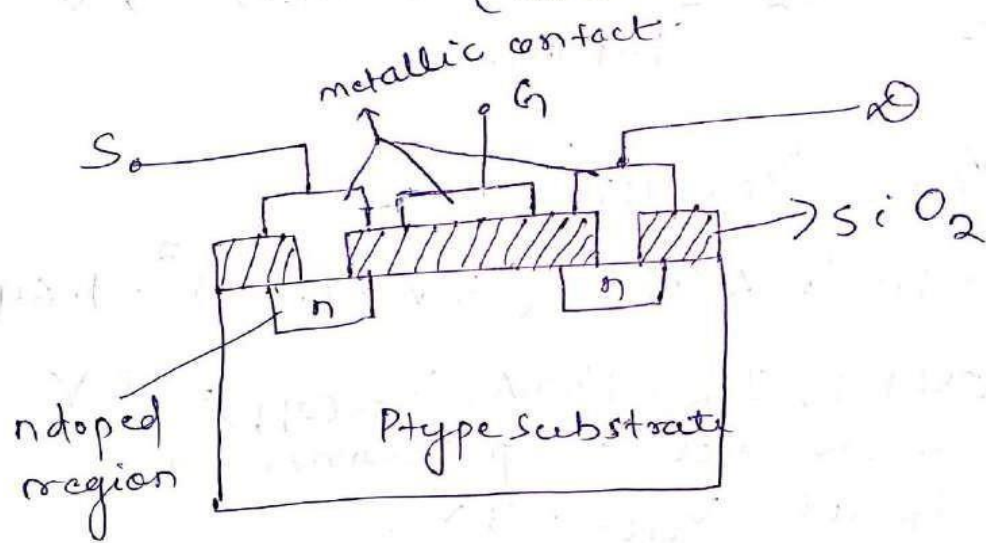 metallic contact
G
D
S
SiO2
n
n
n doped
region
Ptype substrate